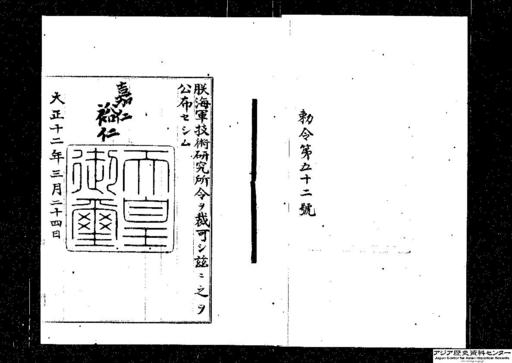 勅令第五十二號
朕海軍技術研究所令ヲ裁可シ茲ニ之ヲ
公布セシム
嘉仁
裕仁
天皇
御璽
大正十二年三月二十四日
アジア歴史資料センター
Japan Center for Asian Historical Records